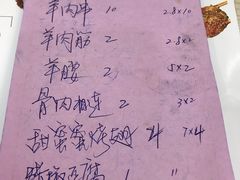 羊肉串 10 2.8×10
羊肉筋 2 2.8×2
羊腰 2 5×2
骨肉相连 2 3×2
甜蜜蜜烤翅 4 7×4
豆腐 1 11